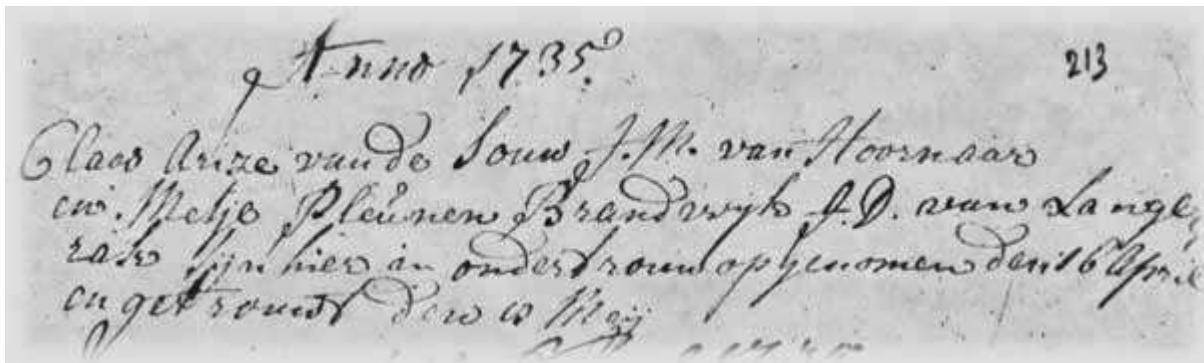 Anno 1735
213
Claas Arize van de Souw J.M. van Hoornaar
en Metje Pleunen Brandwyk J.D. van Lange
rak sijn hier in ondertrouw opgenomen den 16 April
en getrouwt den Meij